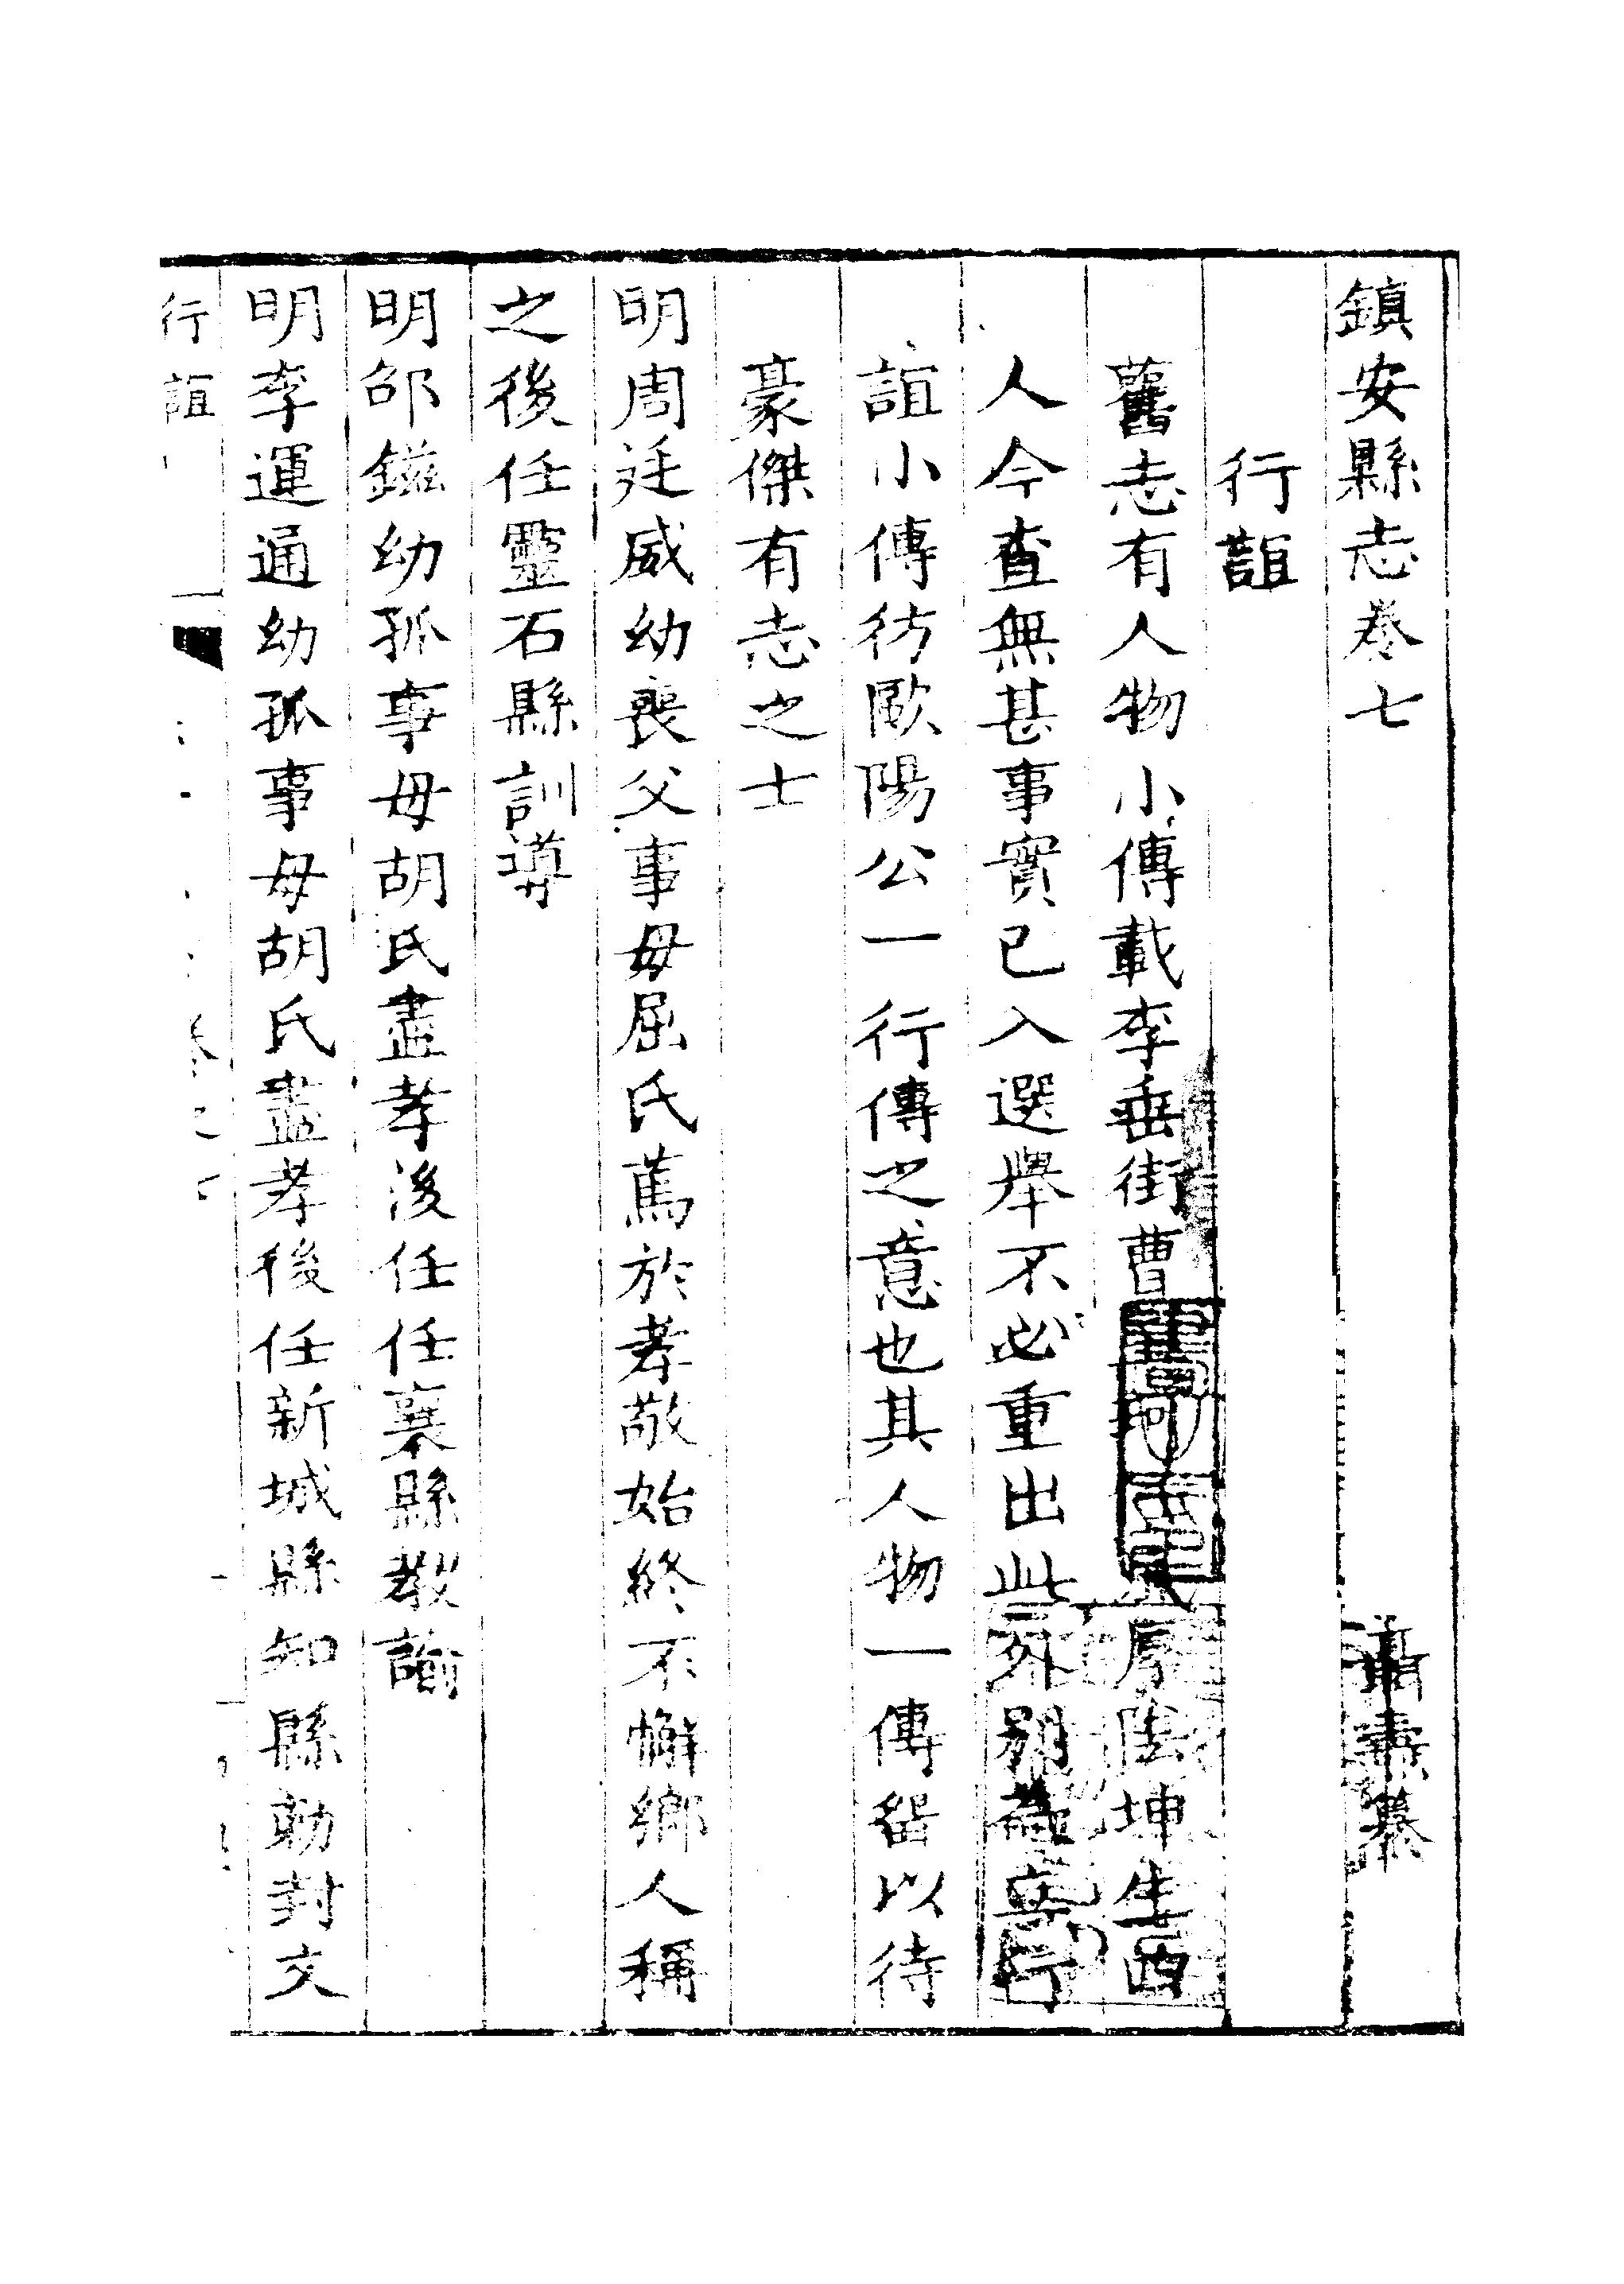 鎮安縣志卷七
聶燾纂
行誼
舊志有人物小傳載李垂街曹厚陸坤生西
人今查無甚事實已入選舉不必重出此外別為立行
誼小傳彷歐陽公一行傳之意也其人物一傳留以待
豪傑有志之士
明周廷威幼喪父事母屈氏篤於孝敬始終不懈鄉人稱
之後任靈石縣訓導
明邵鎡幼孤事母胡氏盡孝後任任襄縣教諭
明李運通幼孤事母胡氏盡孝後任新城縣知縣勅封文
行誼